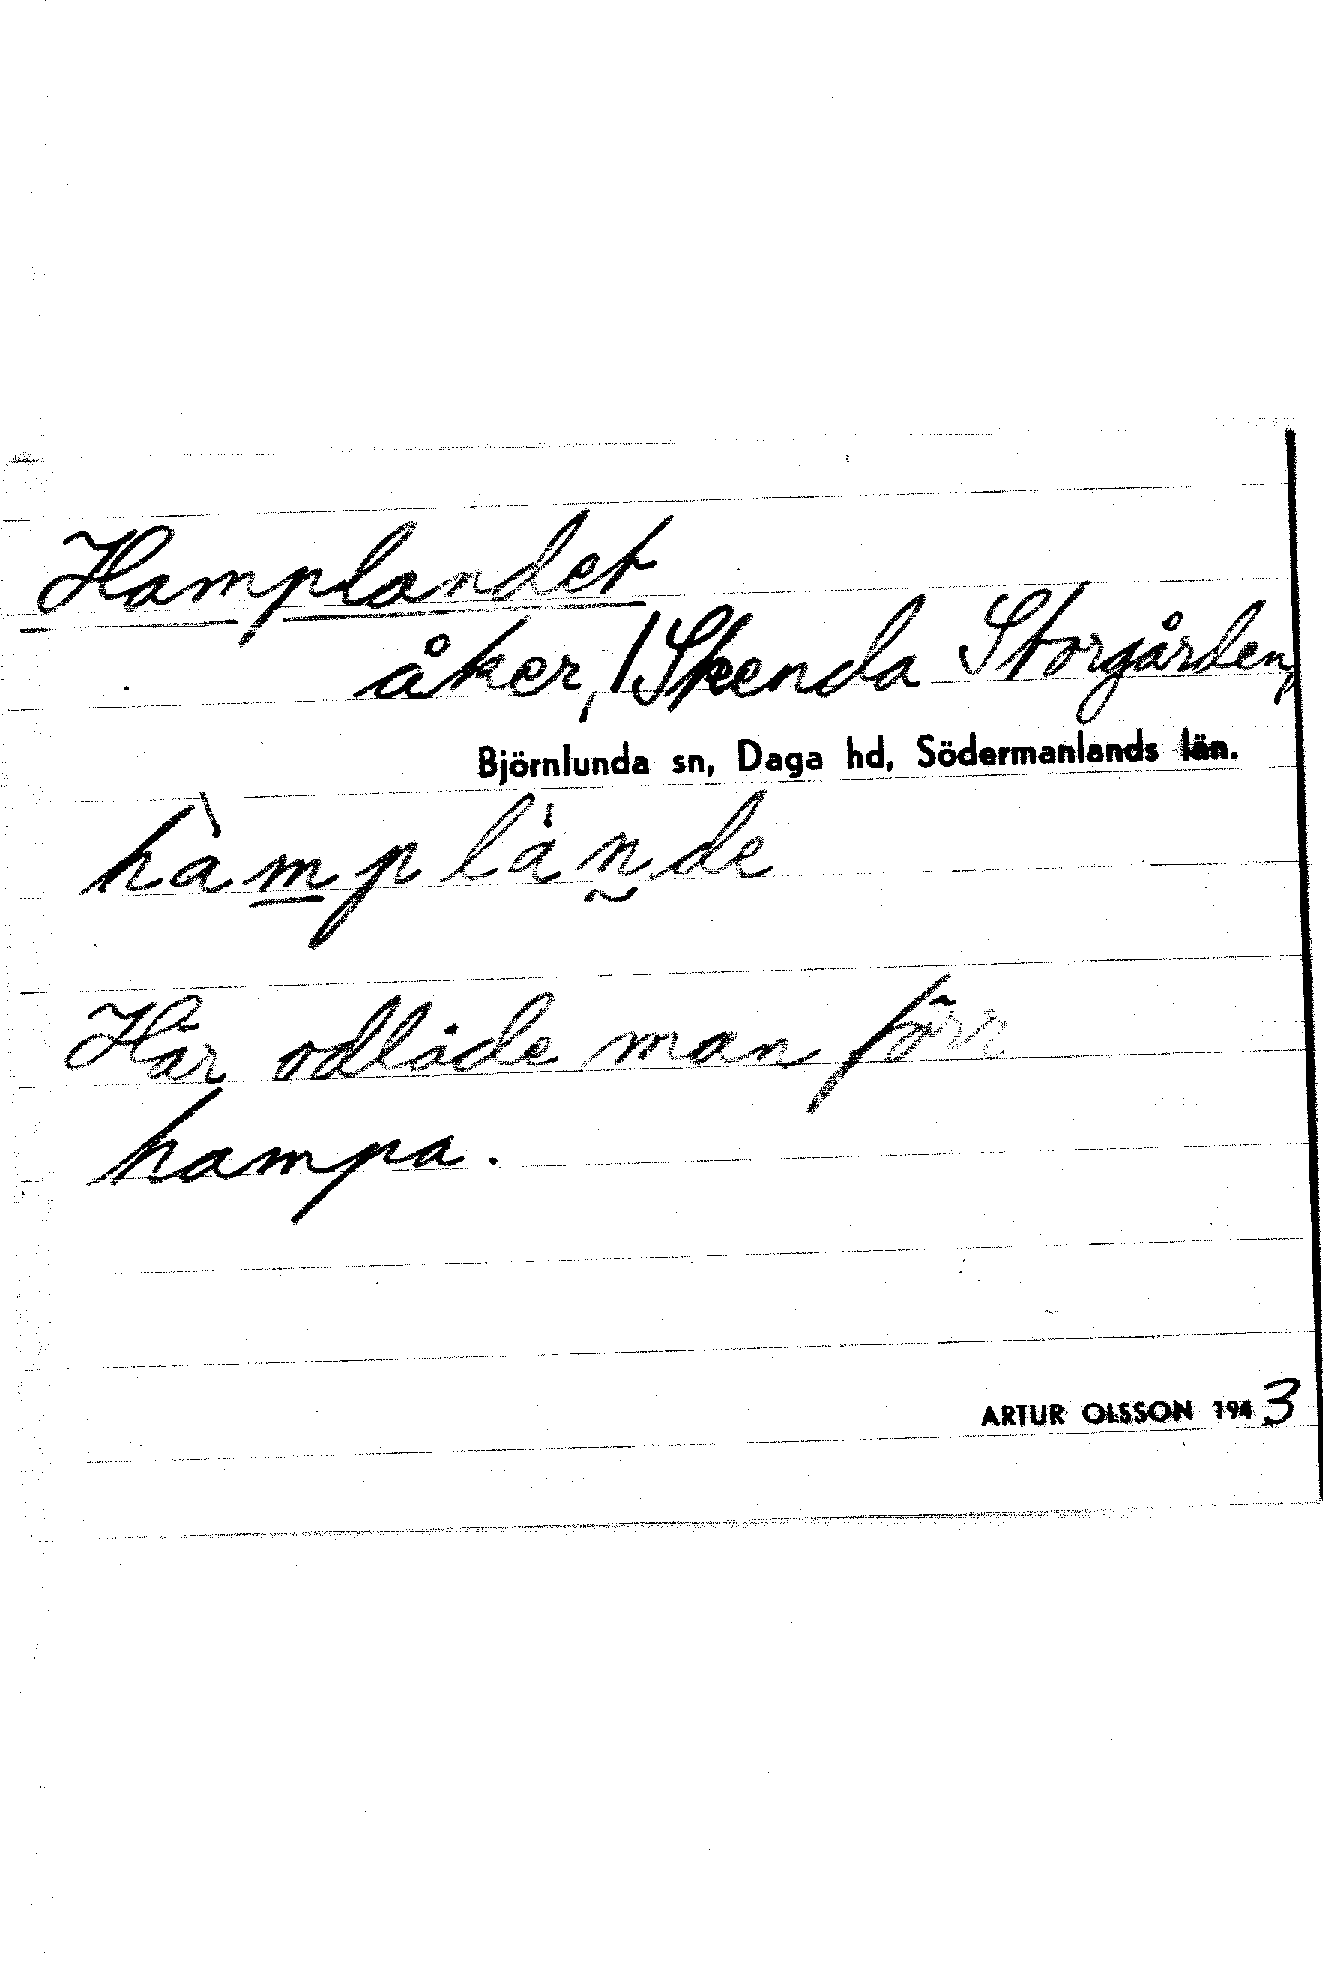 Hamplandet
åker, Skenda Storgården,
Björnlunda sn, Daga hd, Södermanlands län.
hàmplȧn̰de
Här odlade man förr
hampa.
ARTUR OLSSON 1943